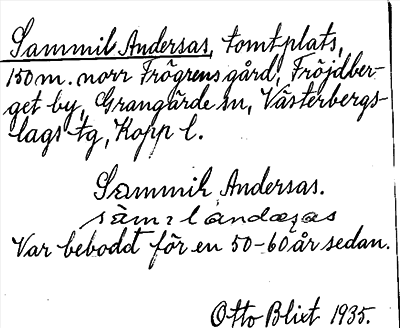 Sammil Andersas, tomtplats,
150 m. norr Frögrens gård, Fröjdber-
get by, Grangärde sn, Västerbergs-
lags tg, Kopp l.
Sammil Andersas.
Var bebodd för en 50-60 år sedan.
Otto Blixt 1935.